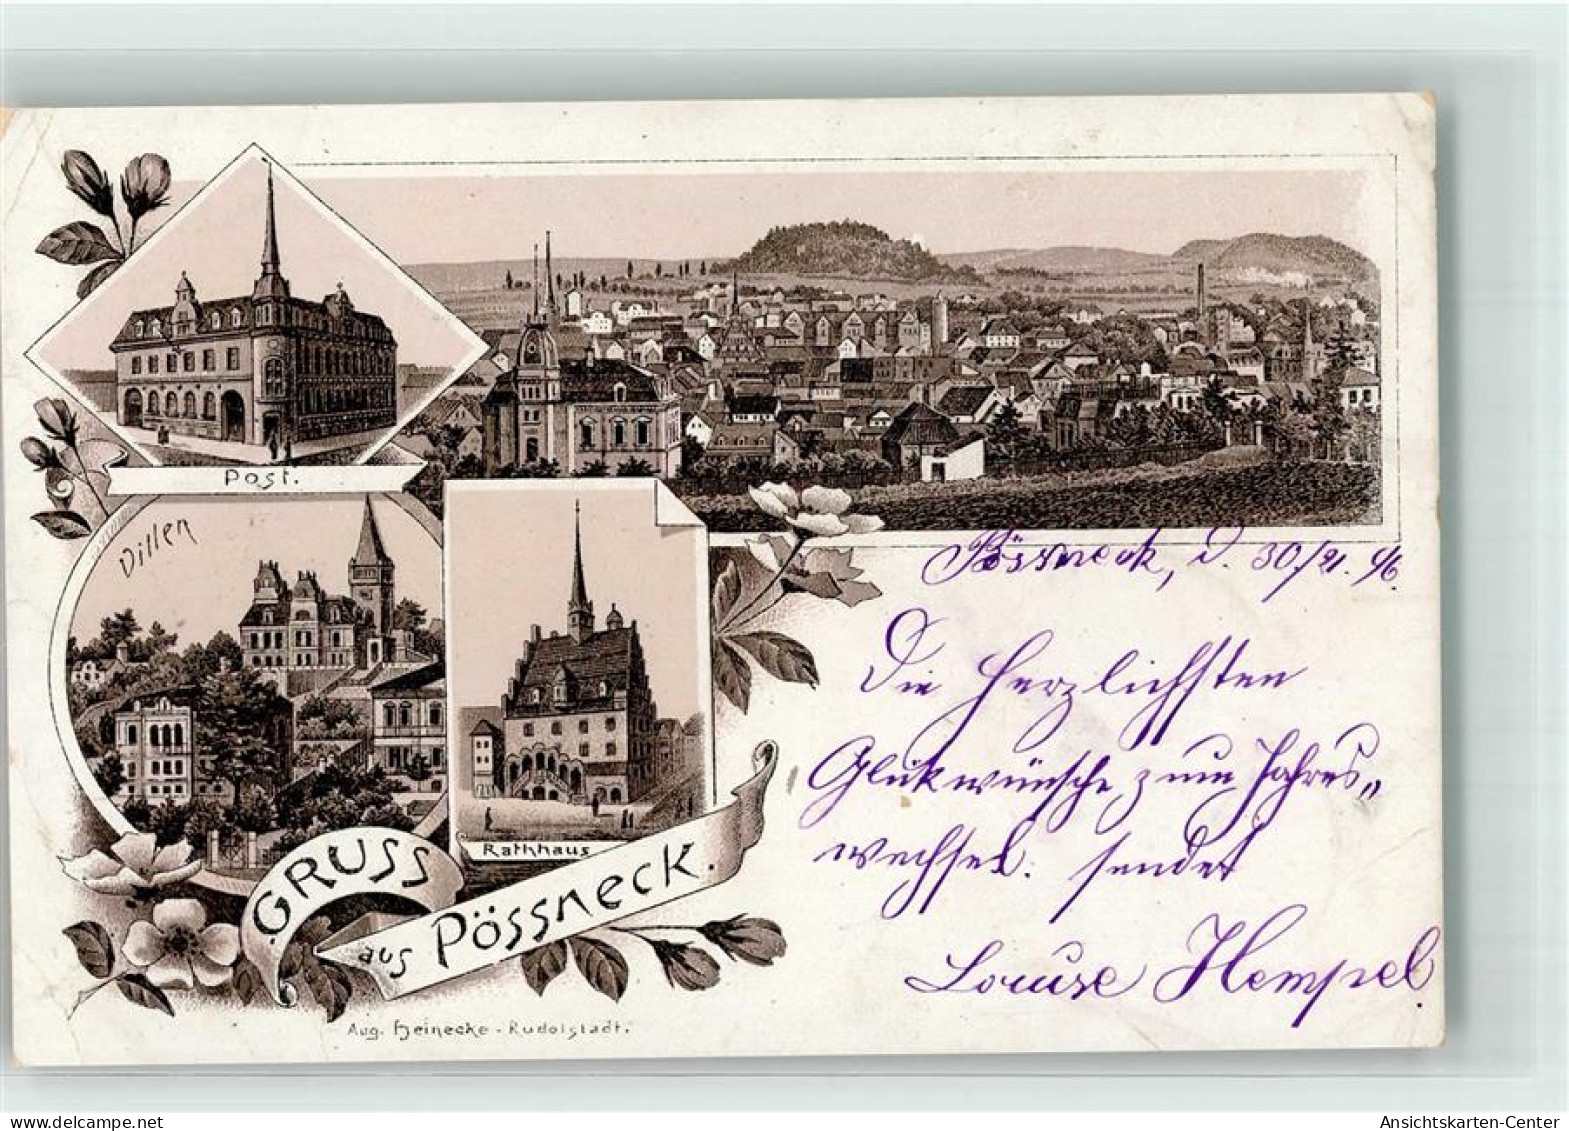 Post.
Villen
Rathhaus
GRUSS
aus Pössneck.
Aug. Heinecke - Rudolstadt.
Pössneck, d. 30./
Die Herzlichsten
Glükwünsche zum Jahres„
wechsel. sendet
Louise Hempel
delcampe.net
Ansichtskarten-Center